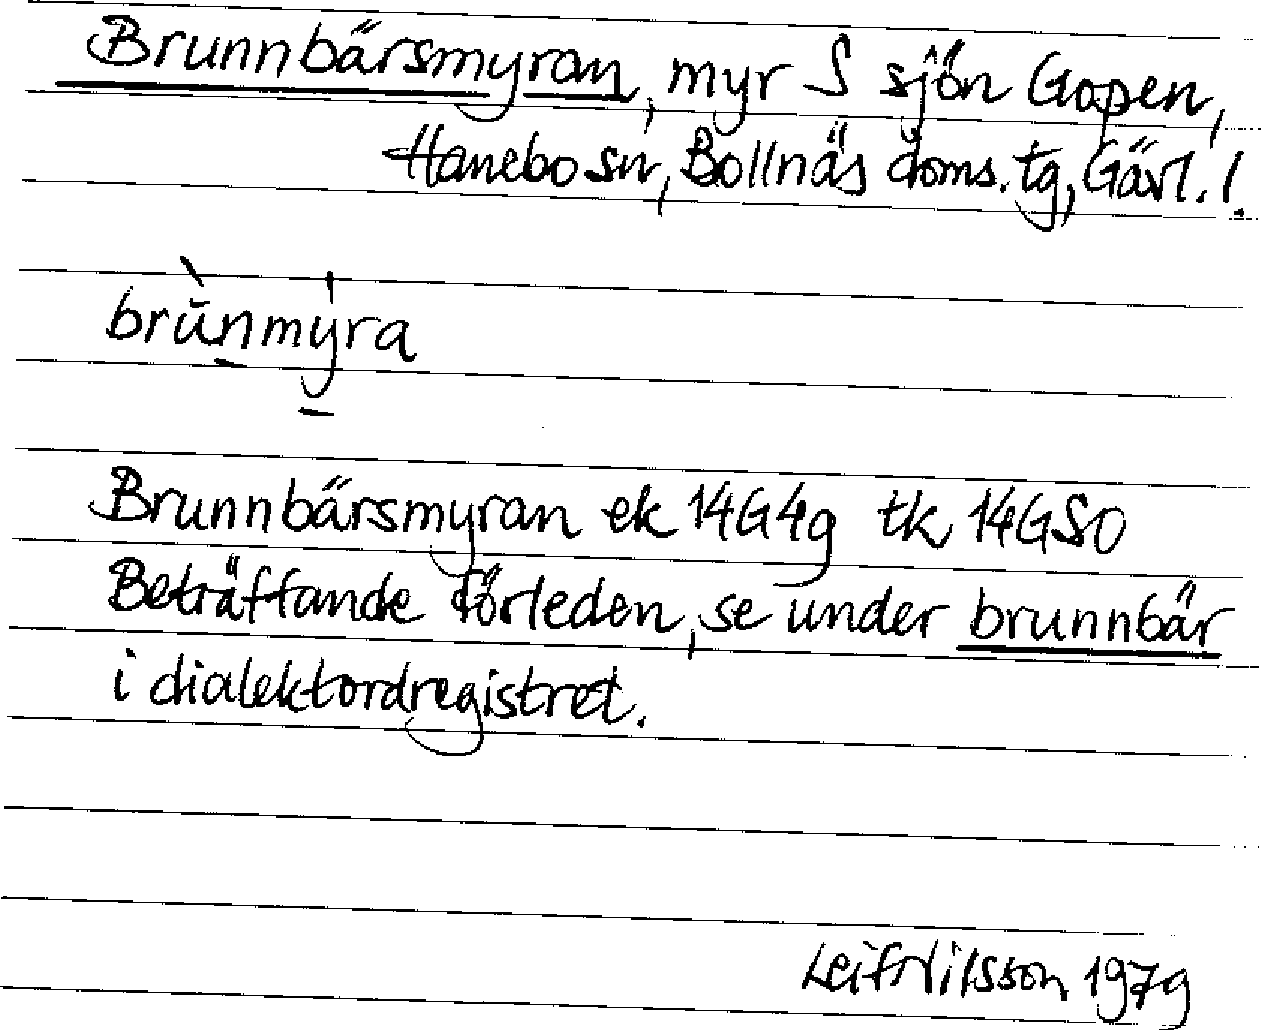 Brunnbärsmyran, myr S sjön Gopen,
Hanebo sn, Bollnäs doms. tg, Gävl. l.
brŭ̀nmýra
Brunnbärsmyran ek 14G4g tk 14GSO
Beträffande förleden, se under brunnbär
i dialektordregistret.
Leif Nilsson 1979